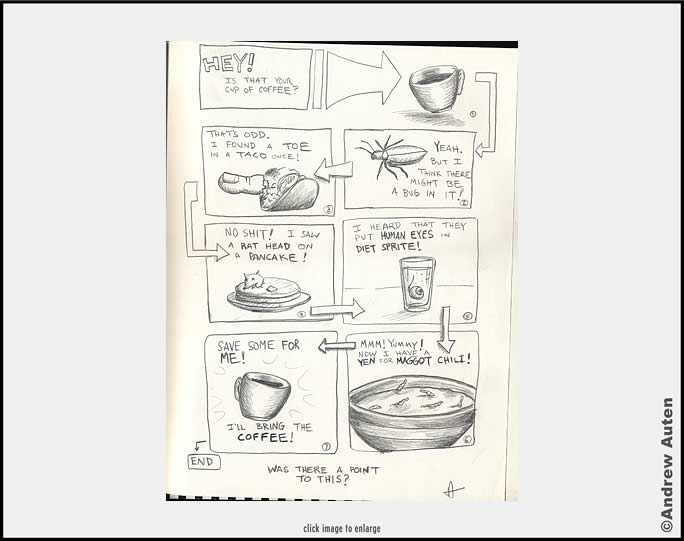 HEY!
IS THAT YOUR
CUP OF COFFEE?
1
YEAH.
BUT I
THINK THERE
MIGHT BE
A BUG IN IT!
2
THAT'S ODD.
I FOUND A TOE
IN A TACO ONCE!
3
NO SHIT! I SAW
A RAT HEAD ON
A PANCAKE!
4
I HEARD THAT THEY
PUT HUMAN EYES IN
DIET SPRITE!
5
MMM! YUMMY!
NOW I HAVE A
YEN FOR MAGGOT CHILI!
6
SAVE SOME FOR
ME!
I'LL BRING THE
COFFEE!
7
END
WAS THERE A POINT
TO THIS?
click image to enlarge
©Andrew Auten